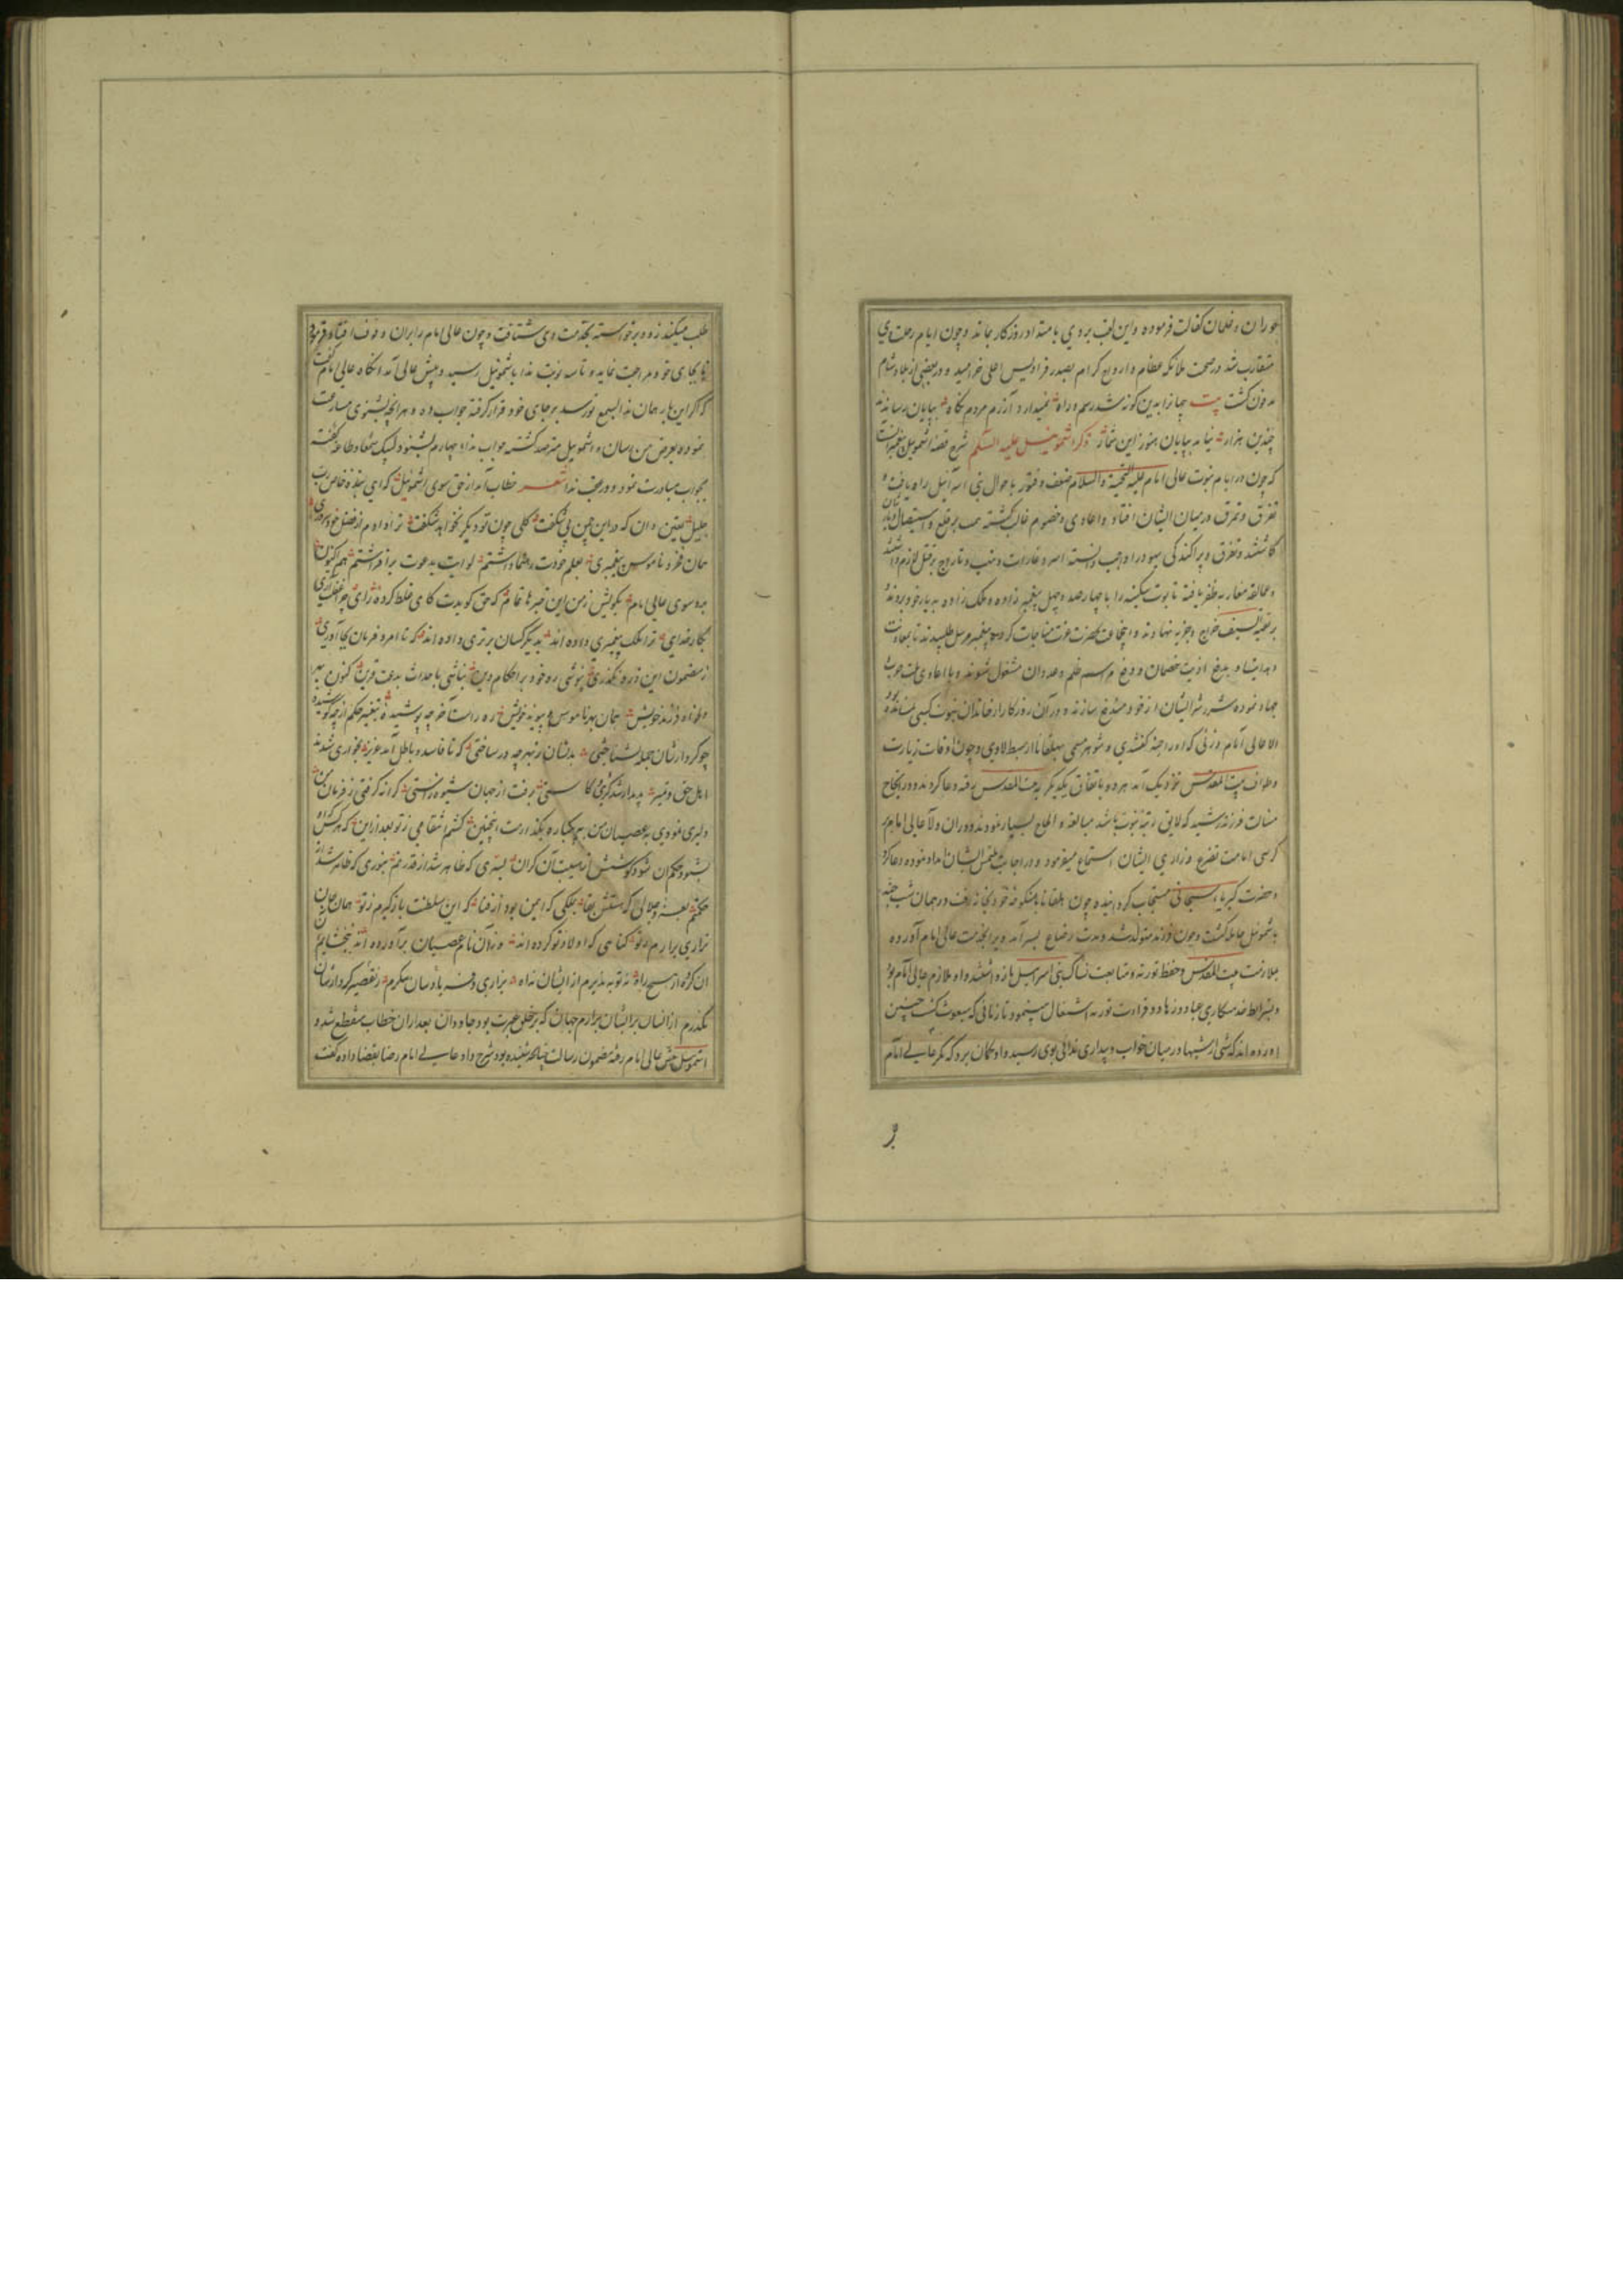 حوران و غلمان کفالت فرموده و این لقب بر وی بامتداد روزکار بماند و چون ایام رحلت وی
متقارب شد در صحبت ملائکه عظام و ارواح کرام بصدر فرادیس اعلی خرامید و در بعضی از بلاد شام
مدفون کشت بیت جهانرا بدین کونه شد رسم و راه نمیدارد آزرم مردم نکاه بپایان رساند
چندین هزار نیامد بپایان هنوز این شمار ذکر اشموئیل علیه السلام شرح قصه اشموئیل
که چون در ایام نبوت عالی امام علیه التحیة و السلام ضعف و فتور باحوال بنی اسرائیل راه یافت و
تفرق و تمزق در میان ایشان افتاد و اعادی و خصوم غالب کشته همت بر قلع و استیصال
کاشتند و تفرق و پراکندکی یهود را واجب دانسته اسر و غارات و نهب و تاراج بر قتل لازم
و عمالقه مغاربه ظفر یافته تابوت سکینه را با چهار صد و چهل پیغمبر زاده و ملک زاده بدیار خود بردند
بر بقیة السیف خراج و جزیه نهادند و بحضرت عزت مناجات کرده پیغمبر مرسل طلبیدند تا بمعاونت
و هدایت او بدفع اذیت خصمان و رفع مراسم ظلم و عدوان مشغول شوند و با اعادی ملت حرب
جهاد نموده شر و شور ایشان از خود مندفع سازند و در آن روزکار از خاندان نبوت کسی نمانده بود
الا عالی امام و زنی که او را حنه کفتندی و شوهر مسمی بهلقانا از سبط لاوی و چون اوقات زیارت
و طواف بیت المقدس نزدیک آمد هر دو باتفاق یکدیکر به بیت المقدس رفته دعا کردند و در انجاح
منات فرزند رشید که لایق رتبه نبوت باشد مبالغه و الحاح بسیار نمودند و در آن ولا عالی امام بر
کرسی امامت تضرع و زاری ایشان استماع میفرمود و در اجابت ملتمس ایشان امداد نموده دعا کرد
و حضرت کبریاء سبحانی مستجاب کردانیده چون هلقانا با منکوحه خود بخانه رفت در همان شب حنه
باشموئیل حامله کشت و چون فرزند متولد شد و مدت رضاع بسر آمد ویرا بخدمت عالی امام آورده
بملازمت بیت المقدس و حفظ توریة و متابعت نساک بنی اسرائیل باز داشتند و او ملازم عالی امام بود
و بشرایط خدمتکاری عباد و زهاد و قراءت توریة اشتغال مینمود تا زمانی که مبعوث کشت چنین
آورده اند که شبی از شبها در میان خواب و بیداری ندائی بوی رسید و او کمان برد که مکر عالی امام
طلب میکند زود برخواسته بخدمت وی شتافت و چون عالی امام را بران وقوف افتاد فرمود
تا بجای خود مراجعت نماید و تا سه نوبت ندا باشموئیل رسید و پیش عالی آمد آنکاه عالی امام کفت
که اکر این بار همان ندا بسمع تو رسد بر جای خود قرار کرفته جواب ده و هر آنچه بشنوی مسارعت
نموده بعرض من رسان و اشموئیل مترصد کشته جواب نداء چهارم بشنود لبیک سمعا و طاعة کفته
بجواب مبادرت نمود و در عقب ندا شعر خطاب آمد از حق سوی اشموئیل که ای بنده خاص رب
جلیل یقین دان که در این چمن بی شکفت کلی چون تو دیکر نخواهد شکفت ترا دادم از فضل خود سروری
همان فر و ناموس پیغمبری بعلم خودت رهنما داشتم لوایت بدعوت برافراشتم هم اکنون
برو سوی عالی امام بکویش ز من این خبرها تمام که حق کویدت کای غلط کرده رای چرا
بکار خدای ترا ملک پیغمبری داده اند بدیکر کسان برتری داده اند که تا امر و فرمان بجا آوری
ز مضمون این ذره نکذری نپوشی ره خود بر احکام دین نباشی باحداث بدعت قرین کنون
فرزند خویش همان بهر ناموس و پیوند خویش ره راست از خرچه پوشیده بتغییر حکم ازچه کوشیده
چو کردارشان جمله بشناختی بدیشان ز بهر چه در ساختی که تا فاسد و باطل آمد عزیز بخواری شدند
اهل حق و تمیز پدیدار شد کژی کاستی برفت از جهان شیوه راستی کرانه کرفتی ز فرمان من
دلیری نمودی بعصیان من بیکباره بکذارمت اینچنین کشم انتقامی ز تو بعد ازین که هر کس
بشنود حکم آن شود کوشش از هیبت آن کران بسری که ظاهر شد از قدرتم بنوری که ظاهر شد از
حکمتم بعز و جلالی که هستش بقا بملکی که ایمن بود از فنا که این سلطنت بازکیرم ز تو همان جان
بزاری برآرم ز تو کناهی که اولاد تو کرده اند وز آن نام عصیان برآورده اند نبخشایم
آن کرده از هیچ راه نه توبه پذیرم از ایشان نه آه بزاری و فدیه بادشان مکرم ز تقصیر کردارشان
نکذرم از انسان بر ایشان برآرم جهان که بر خلق عبرت بود جاودان بعد ازان خطاب منقطع شد و
اشموئیل پیش عالی امام رفته مضمون رسالت چنانکه شنیده بود شرح داد عالی امام رضا بقضا داده کفت